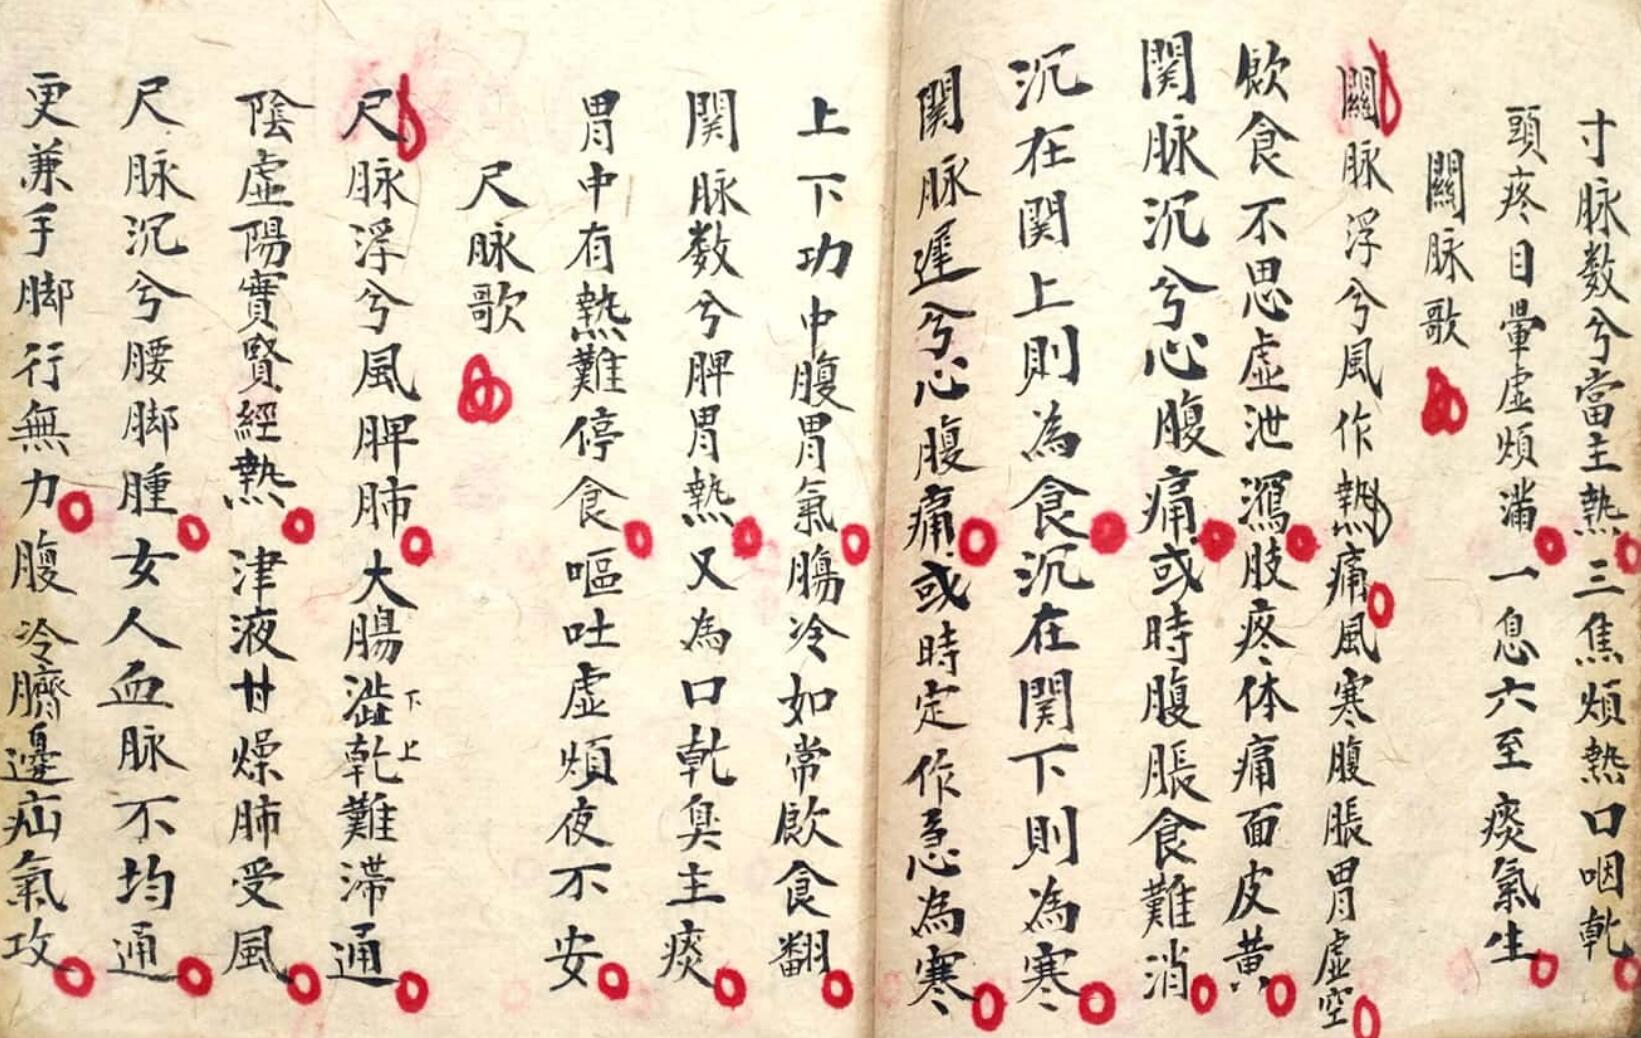 寸脉数兮當主熱三焦煩熱口咽乾
頭疼目暈虛煩滿一息六至痰氣生
關脉歌
關脉浮兮風作熱痛風寒腹脹胃虛空
飲食不思虛泄瀉肢疼体痛面皮黄
関脉沉兮心腹痛或時腹脹食難消
沉在関上則為食沉在関下則為寒
関脉遲兮心腹痛或時定作急為寒
上下功中腹胃氣腸冷如常飲食翻
関脉数兮脾胃熱又為口乾臭主痰
胃中有熱難停食嘔吐虛煩夜不安
尺脉歌
尺脉浮兮風脾肺大腸澁下乾上難滞通
陰虛陽實賢經熱津液甘燥肺受風
尺脉沉兮腰脚腫女人血脉不均通
更兼手脚行無力腹冷臍邊疝氣攻